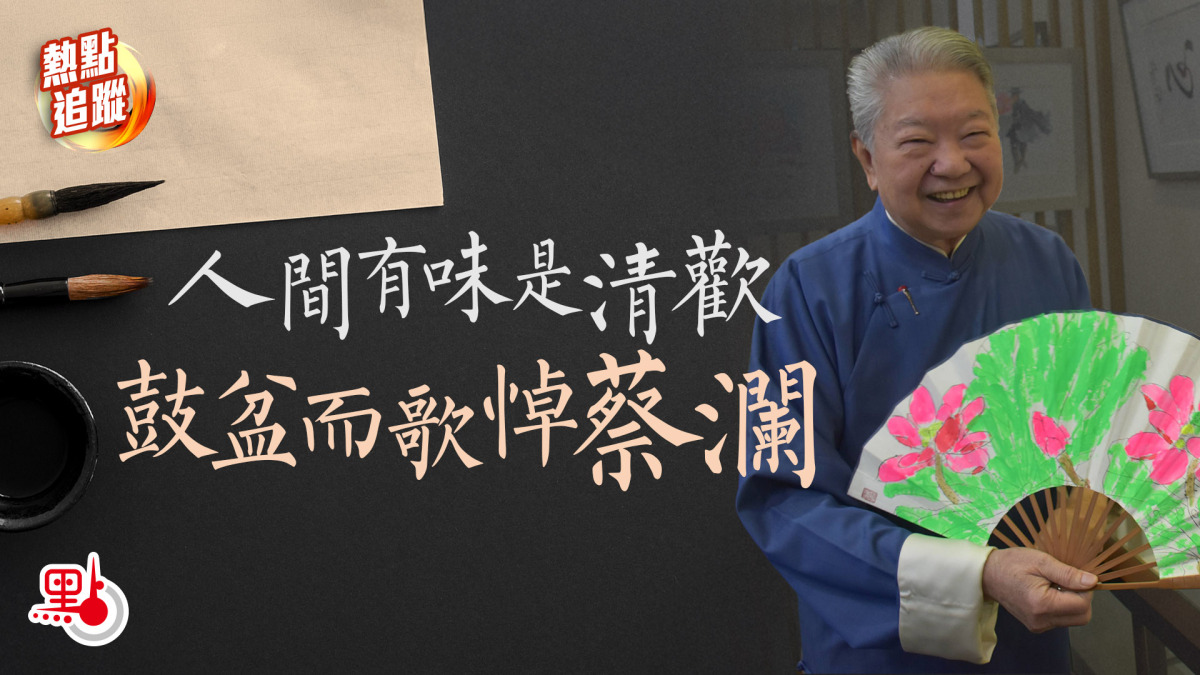 熱點
追蹤
人間有味是清歡
鼓盆而歌悼蔡瀾
點